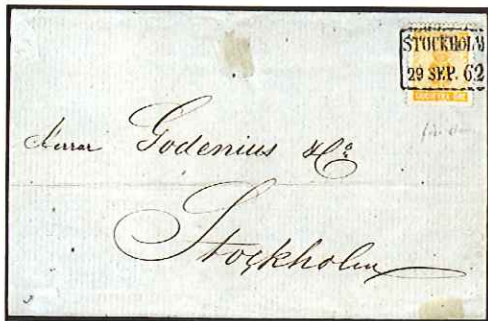 STOCKHOLM
29 SEP. 62
Herrar Godenius & Co
Stockholm